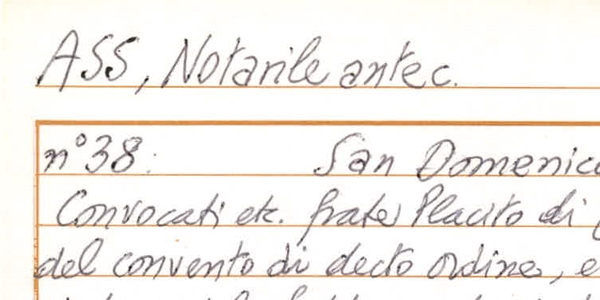 ASS, Notarile antec.
n° 38: San Domenico
Convocati etc. frate Placito di
del convento di decto ordine, e